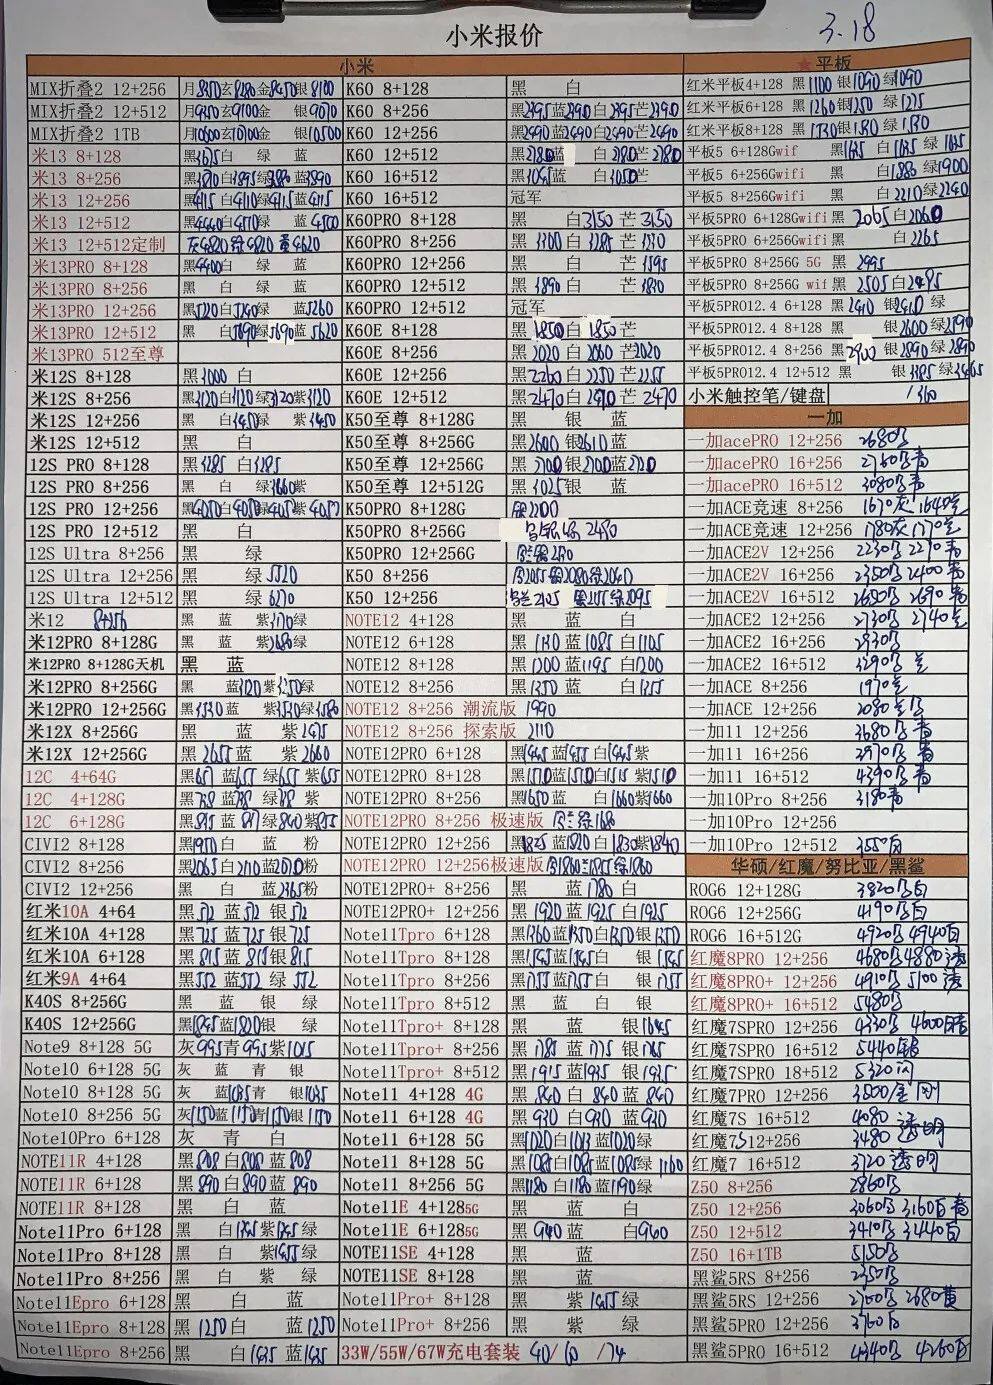 小米报价
3.18
小米
MIX折叠2 12+256 月8350玄8280金8450银8100
MIX折叠2 12+512 月9350玄9100金 银9070
MIX折叠2 1TB 月10600玄10700金 银10500
米13 8+128 黑3675白 绿 蓝
米13 8+256 黑3870白3895绿3880蓝3890
米13 12+256 黑4115白4110绿4115蓝4115
米13 12+512 黑4440白4510绿 蓝4500
米13 12+512定制 灰4820绿4820 4620
米13PRO 8+128 黑4400白 绿 蓝
米13PRO 8+256 黑 白 绿 蓝
米13PRO 12+256 黑5220白5240绿 蓝5260
米13PRO 12+512 黑 白5690绿5690蓝5620
米13PRO 512至尊
米12S 8+128 黑3000 白
米12S 8+256 黑3120白3120绿3120紫3120
米12S 12+256 黑 白3450绿 紫3450
米12S 12+512 黑 白
12S PRO 8+128 黑3285 白3285
12S PRO 8+256 黑 白 绿3660紫
12S PRO 12+256 黑4050白4050绿4055紫4055
12S PRO 12+512 黑 白
12S Ultra 8+256 黑 绿
12S Ultra 12+256 黑 绿5520
12S Ultra 12+512 黑 绿6270
米12 8+256 黑 蓝 紫3170绿
米12PRO 8+128G 黑 蓝 紫2680绿
米12PRO 8+128G天机 黑 蓝
米12PRO 8+256G 黑 蓝3120紫3250绿
米12PRO 12+256G 黑3530蓝 紫3530绿3580
米12X 8+256G 黑 蓝 紫2475
米12X 12+256G 黑2655蓝 紫2660
12C 4+64G 黑657蓝655 绿655 紫655
12C 4+128G 黑738蓝738 绿738 紫
12C 6+128G 黑845蓝847绿840紫855
CIVI2 8+128 黑1950白 蓝 粉
CIVI2 8+256 黑2065白2110蓝2070粉
CIVI2 12+256 黑 白 蓝2365粉
红米10A 4+64 黑572蓝572银572
红米10A 4+128 黑725蓝725银725
红米10A 6+128 黑815蓝815银815
红米9A 4+64 黑552蓝552 绿 552
K40S 8+256G 黑 蓝 银 绿
K40S 12+256G 黑1845蓝1820银 绿
Note9 8+128 5G 灰995青995紫1015
Note10 6+128 5G 灰 蓝 青 银
Note10 8+128 5G 灰 蓝1035青 银1035
Note10 8+256 5G 灰1150蓝1150青1150银1150
Note10Pro 6+128 灰 青 白
NOTE11R 4+128 黑808白808蓝808
NOTE11R 6+128 黑890白890蓝890
NOTE11R 8+128 黑 白 蓝
Note11Pro 6+128 黑 白1365紫1365绿
Note11Pro 8+128 黑 白 紫1455绿
Note11Pro 8+256 黑 白 紫 绿
Note11Epro 6+128 黑 白 蓝
Note11Epro 8+128 黑1250白 蓝1250
Note11Epro 8+256 黑 白1435蓝1435
K60 8+128 黑 白
K60 8+256 黑2395蓝2390白2395芒2390
K60 12+256 黑2490蓝2490白2490芒2490
K60 12+512 黑2780蓝 白2780芒2780
K60 16+512 黑3045蓝 白3050芒
K60 16+512 冠军
K60PRO 8+128 黑 白3150芒3150
K60PRO 8+256 黑3300白3285芒3330
K60PRO 12+256 黑 白 芒3595
K60PRO 12+512 黑3890白 芒3830
K60PRO 12+512 冠军
K60E 8+128 黑1850白1850芒
K60E 8+256 黑2020白2060芒2020
K60E 12+256 黑2260白2250芒2255
K60E 12+512 黑2470白2470芒2470
K50至尊 8+128G 黑 银 蓝
K50至尊 8+256G 黑2600银2610蓝
K50至尊 12+256G 黑2700银2700蓝2720
K50至尊 12+512G 黑3025银 蓝
K50PRO 8+128G 2200
K50PRO 8+256G 2480
K50PRO 12+256G
K50 8+256 2055银2080绿2040
K50 12+256 2205 2095
NOTE12 4+128 黑 蓝 白
NOTE12 6+128 黑1130蓝1085白1105
NOTE12 8+128 黑1200蓝1195白1200
NOTE12 8+256 黑1350蓝 白1355
NOTE12 8+256 潮流版 1990
NOTE12 8+256 探索版 2110
NOTE12PRO 6+128 黑1445蓝1455白1445紫
NOTE12PRO 8+128 黑1510蓝1510白1515紫1510
NOTE12PRO 8+256 黑1650蓝 白1660紫1660
NOTE12PRO 8+256 极速版 1680
NOTE12PRO 12+256极速版 1860 1855绿1860
NOTE12PRO+ 8+256 黑1825蓝1820白1830紫1840
NOTE12PRO+ 8+256 黑 蓝1780白
NOTE12PRO+ 12+256 黑1920蓝1925白1925
Note11Tpro 6+128 黑1360蓝1350白1350银1350
Note11Tpro 8+128 黑1545蓝1545白 银1545
Note11Tpro 8+256 黑1755蓝1755白 银1755
Note11Tpro 8+512 黑 蓝 白 银
Note11Tpro+ 8+128 黑 蓝 银1645
Note11Tpro+ 8+256 黑1785蓝1775银1765
Note11Tpro+ 8+512 黑1915蓝1935银1935
Note11 4+128 4G 黑840白840蓝840
Note11 6+128 4G 黑930白930蓝930
Note11 6+128 5G 黑1020白1013蓝1020绿
Note11 8+128 5G 黑1085白1085蓝1085绿1160
Note11 8+256 5G 黑1180白1180蓝1190绿
Note11E 4+128 5G 黑 蓝 白
Note11E 6+128 5G 黑940蓝 白960
NOTE11SE 4+128 黑 蓝
NOTE11SE 8+128 黑 蓝
Note11Pro+ 8+128 黑 紫1455绿
Note11Pro+ 8+256 黑 紫 绿
33W/55W/67W充电套装 40/60/74
★平板
红米平板4+128 黑1100银1090绿1090
红米平板6+128 黑1260银1250绿1275
红米平板8+128 黑1330银1330绿1330
平板5 6+128Gwif 黑1635白1635绿1635
平板5 6+256Gwifi 黑 白1880绿1900
平板5 8+256Gwifi 黑 白2210绿2240
平板5PRO 6+128Gwifi 黑2065白2060
平板5PRO 6+256Gwifi 黑 白2265
平板5PRO 8+256G 5G 黑2995
平板5PRO 8+256G wif 黑2505白2495
平板5PRO12.4 6+128 黑2410银2410绿
平板5PRO12.4 8+128 黑 银2600绿2590
平板5PRO12.4 8+256 黑2900银2890绿2890
平板5PRO12.4 12+512 黑 银3385绿3365
小米触控笔/键盘 /360
一加
一加acePRO 12+256 2680黑
一加acePRO 16+256 2760黑青
一加acePRO 16+512 3080黑青
一加ACE竞速 8+256 1670灰1640蓝
一加ACE竞速 12+256 1780灰1770蓝
一加ACE2V 12+256 2230黑2270青
一加ACE2V 16+256 2350黑2400青
一加ACE2V 16+512 2650黑2690青
一加ACE2 12+256 2730黑2740蓝
一加ACE2 16+256 2930黑
一加ACE2 16+512 3290黑蓝
一加ACE 8+256 1970蓝
一加ACE 12+256 2080蓝黑
一加11 12+256 3680黑青
一加11 16+256 3970黑青
一加11 16+512 4390黑青
一加10Pro 8+256 3180青
一加10Pro 12+256
一加10Pro 12+512 3550白
华硕/红魔/努比亚/黑鲨
ROG6 12+128G 3820黑白
ROG6 12+256G 4190黑白
ROG6 16+512G 4920黑4940白
红魔8PRO 12+256 4680黑4880透
红魔8PRO+ 12+256 4910黑5100透
红魔8PRO+ 16+512 5480黑
红魔7SPRO 12+256 4330黑4600
红魔7SPRO 16+512 5440银
红魔7SPRO 18+512 5320
红魔7PRO 12+256 3800
红魔7S 16+512 4080透明
红魔7S12+256 3480透明
红魔7 16+512 3720透明
Z50 8+256 2860黑
Z50 12+256 3060黑3160白青
Z50 12+512 3410黑3440白
Z50 16+1TB 5150黑
黑鲨5RS 8+256 2350黑
黑鲨5RS 12+256 2700黑2680黄
黑鲨5PRO 12+256 3760黑
黑鲨5PRO 16+512 4340黑4260白